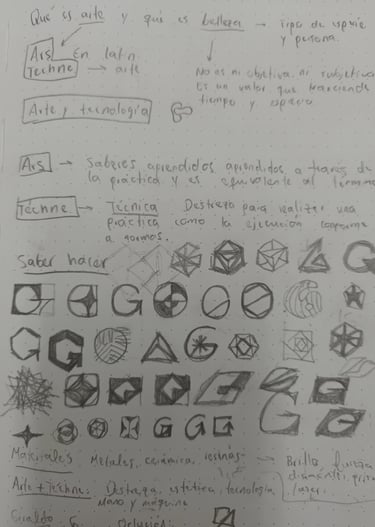 Qué es arte y qué es belleza → Tipo de especie
y persona.
Ars En latin
Techne → arte
No es ni objetiva ni subjetiva
Es un valor que trasciende
tiempo y espacio
Arte y tecnología
Ars → Saberes aprendidos aprendidos a través de
la práctica y es equivalente al termino
Téchne → Técnica Destreza para realizar una
práctica como la ejecución conforme
a normas.
Saber hacer
Materiales Metales, cerámica, resinas → Brillo
Arte + Techne: Destreza, estética, tecnología,
Mano y máquina